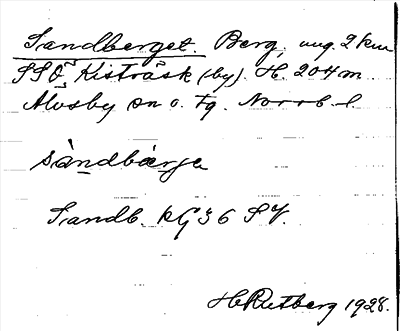 Sandberget. Berg, ung. 2 km
SSÖ Kisträsk (by). H. 204 m.
Älvsby sn o. tg. Norrb. l.
sàndbærje
Sandb. kG36 SV.
H Rutberg 1928.